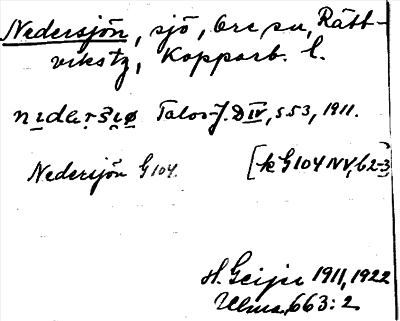 Nedersjön, sjö, Ore sn, Rätt-
vikstg, Kopparb. l.
Talos-J. D IV, s. 53, 1911.
Nedersjön G 104. [k G 104 NV, b 2-3]
H. Geijer 1911, 1922
Ulma 663: 2